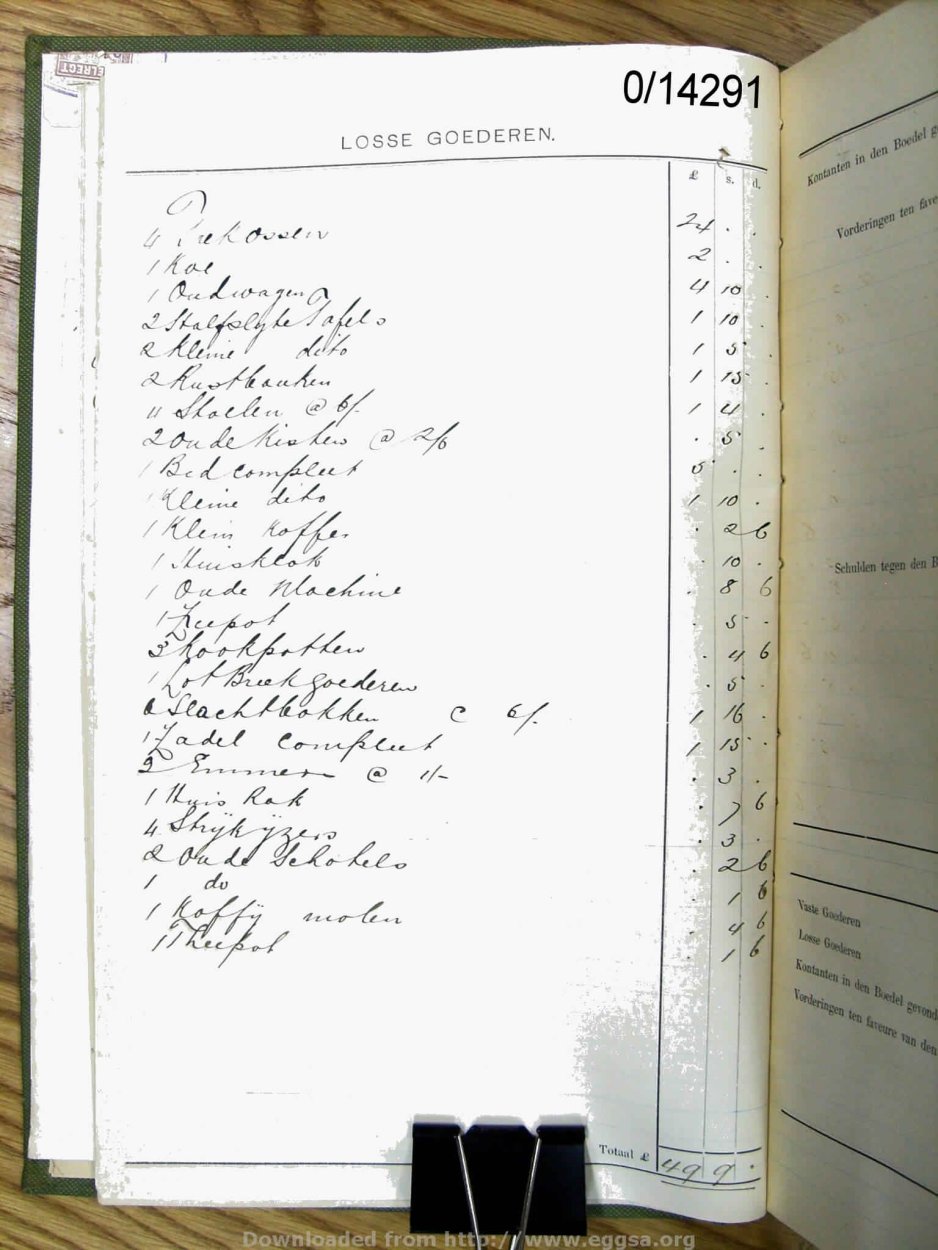 ELREGT
0/14291
LOSSE GOEDEREN.
£ s. d.
4 Trekossen 24 . .
1 Koe 2 . .
1 Oudwagen 4 10 .
2 Halfslyte Tafels 1 10 .
2 Kleine dito 1 5 .
2 Rustbanken 1 15 .
Stoelen @ 6/. 1 4 .
2 oude Kisten @ 2/6 . 5 .
1 Bed compleet 5 . .
1 Kleine dito 1 10 .
1 Klein Koffer . 2 6
1 Huisklok . 10 .
1 Oude Machine . 8 6
1 . 5 .
3 Kookpotten . 4 6
1 Lot Breekgoederen . 5 .
6 Slachtbokken 6/. 1 16 .
1 Zadel compleet 1 15 .
Emmers @ 1/- . 3 .
1 Huis Rak . 7 6
4 Strykyzers . 3 .
2 Oude Schotels . 2 6
1 do . 1 6
1 Koffy molen . 4 6
1 Theepot . 1 6
Totaal £ 49 9 .
Kontanten in den Boedel
Vorderingen ten
Schulden tegen den
Vaste Goederen
Losse Goederen
Kontanten in den Boedel
Vorderingen ten faveure van den
Downloaded from http://www.eggsa.org